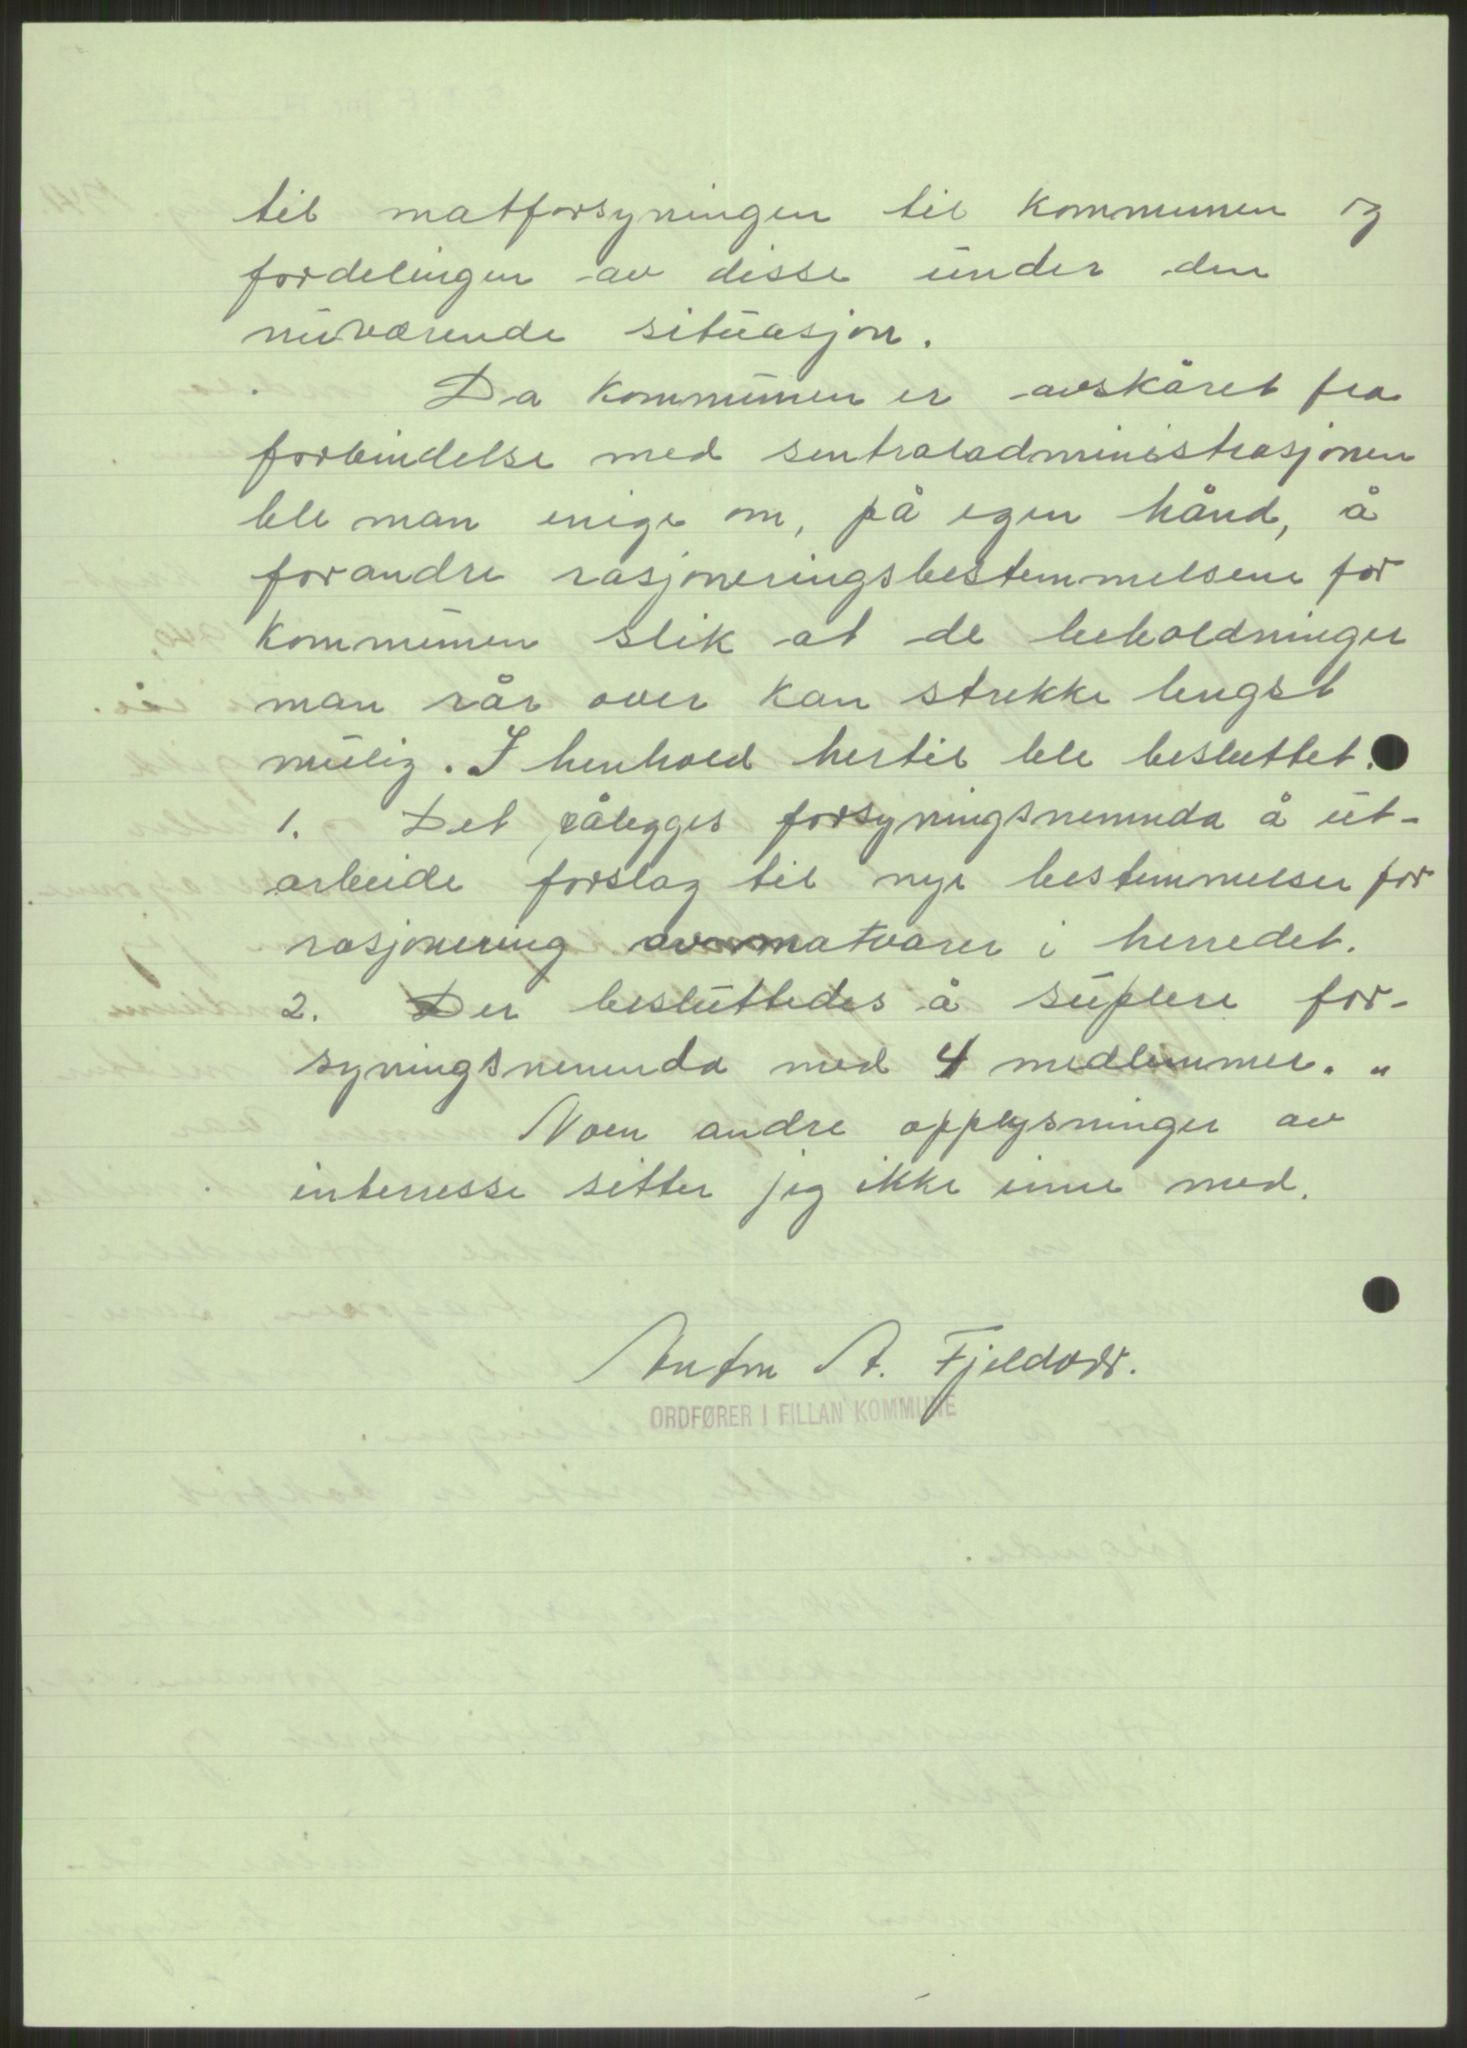 til matforsyningen til kommunen og
fordelingen av disse under den
nuværende situasjon.
Da kommunen er avskåret fra
forbindelse med sentraladministrasjonen
ble man enige om, på egen hånd, å
forandre rasjoneringsbestemmelsene for
kommunen slik at de beholdninger
man rår over kan strekke lengst
mulig. I henhold hertil ble besluttet.
1. Det pålegges forsyningsnemnda å ut-
arbeide forslag til nye bestemmelser for
rasjonering av matvarer i herredet.
2. Der besluttedes å suplere for-
syningsnemnda med 4 medlemmer. "
Noen andre opplysninger av
interresse sitter jeg ikke inne med.
Anton A. Fjeldvær.
ORDFØRER I FILLAN KOMMUNE